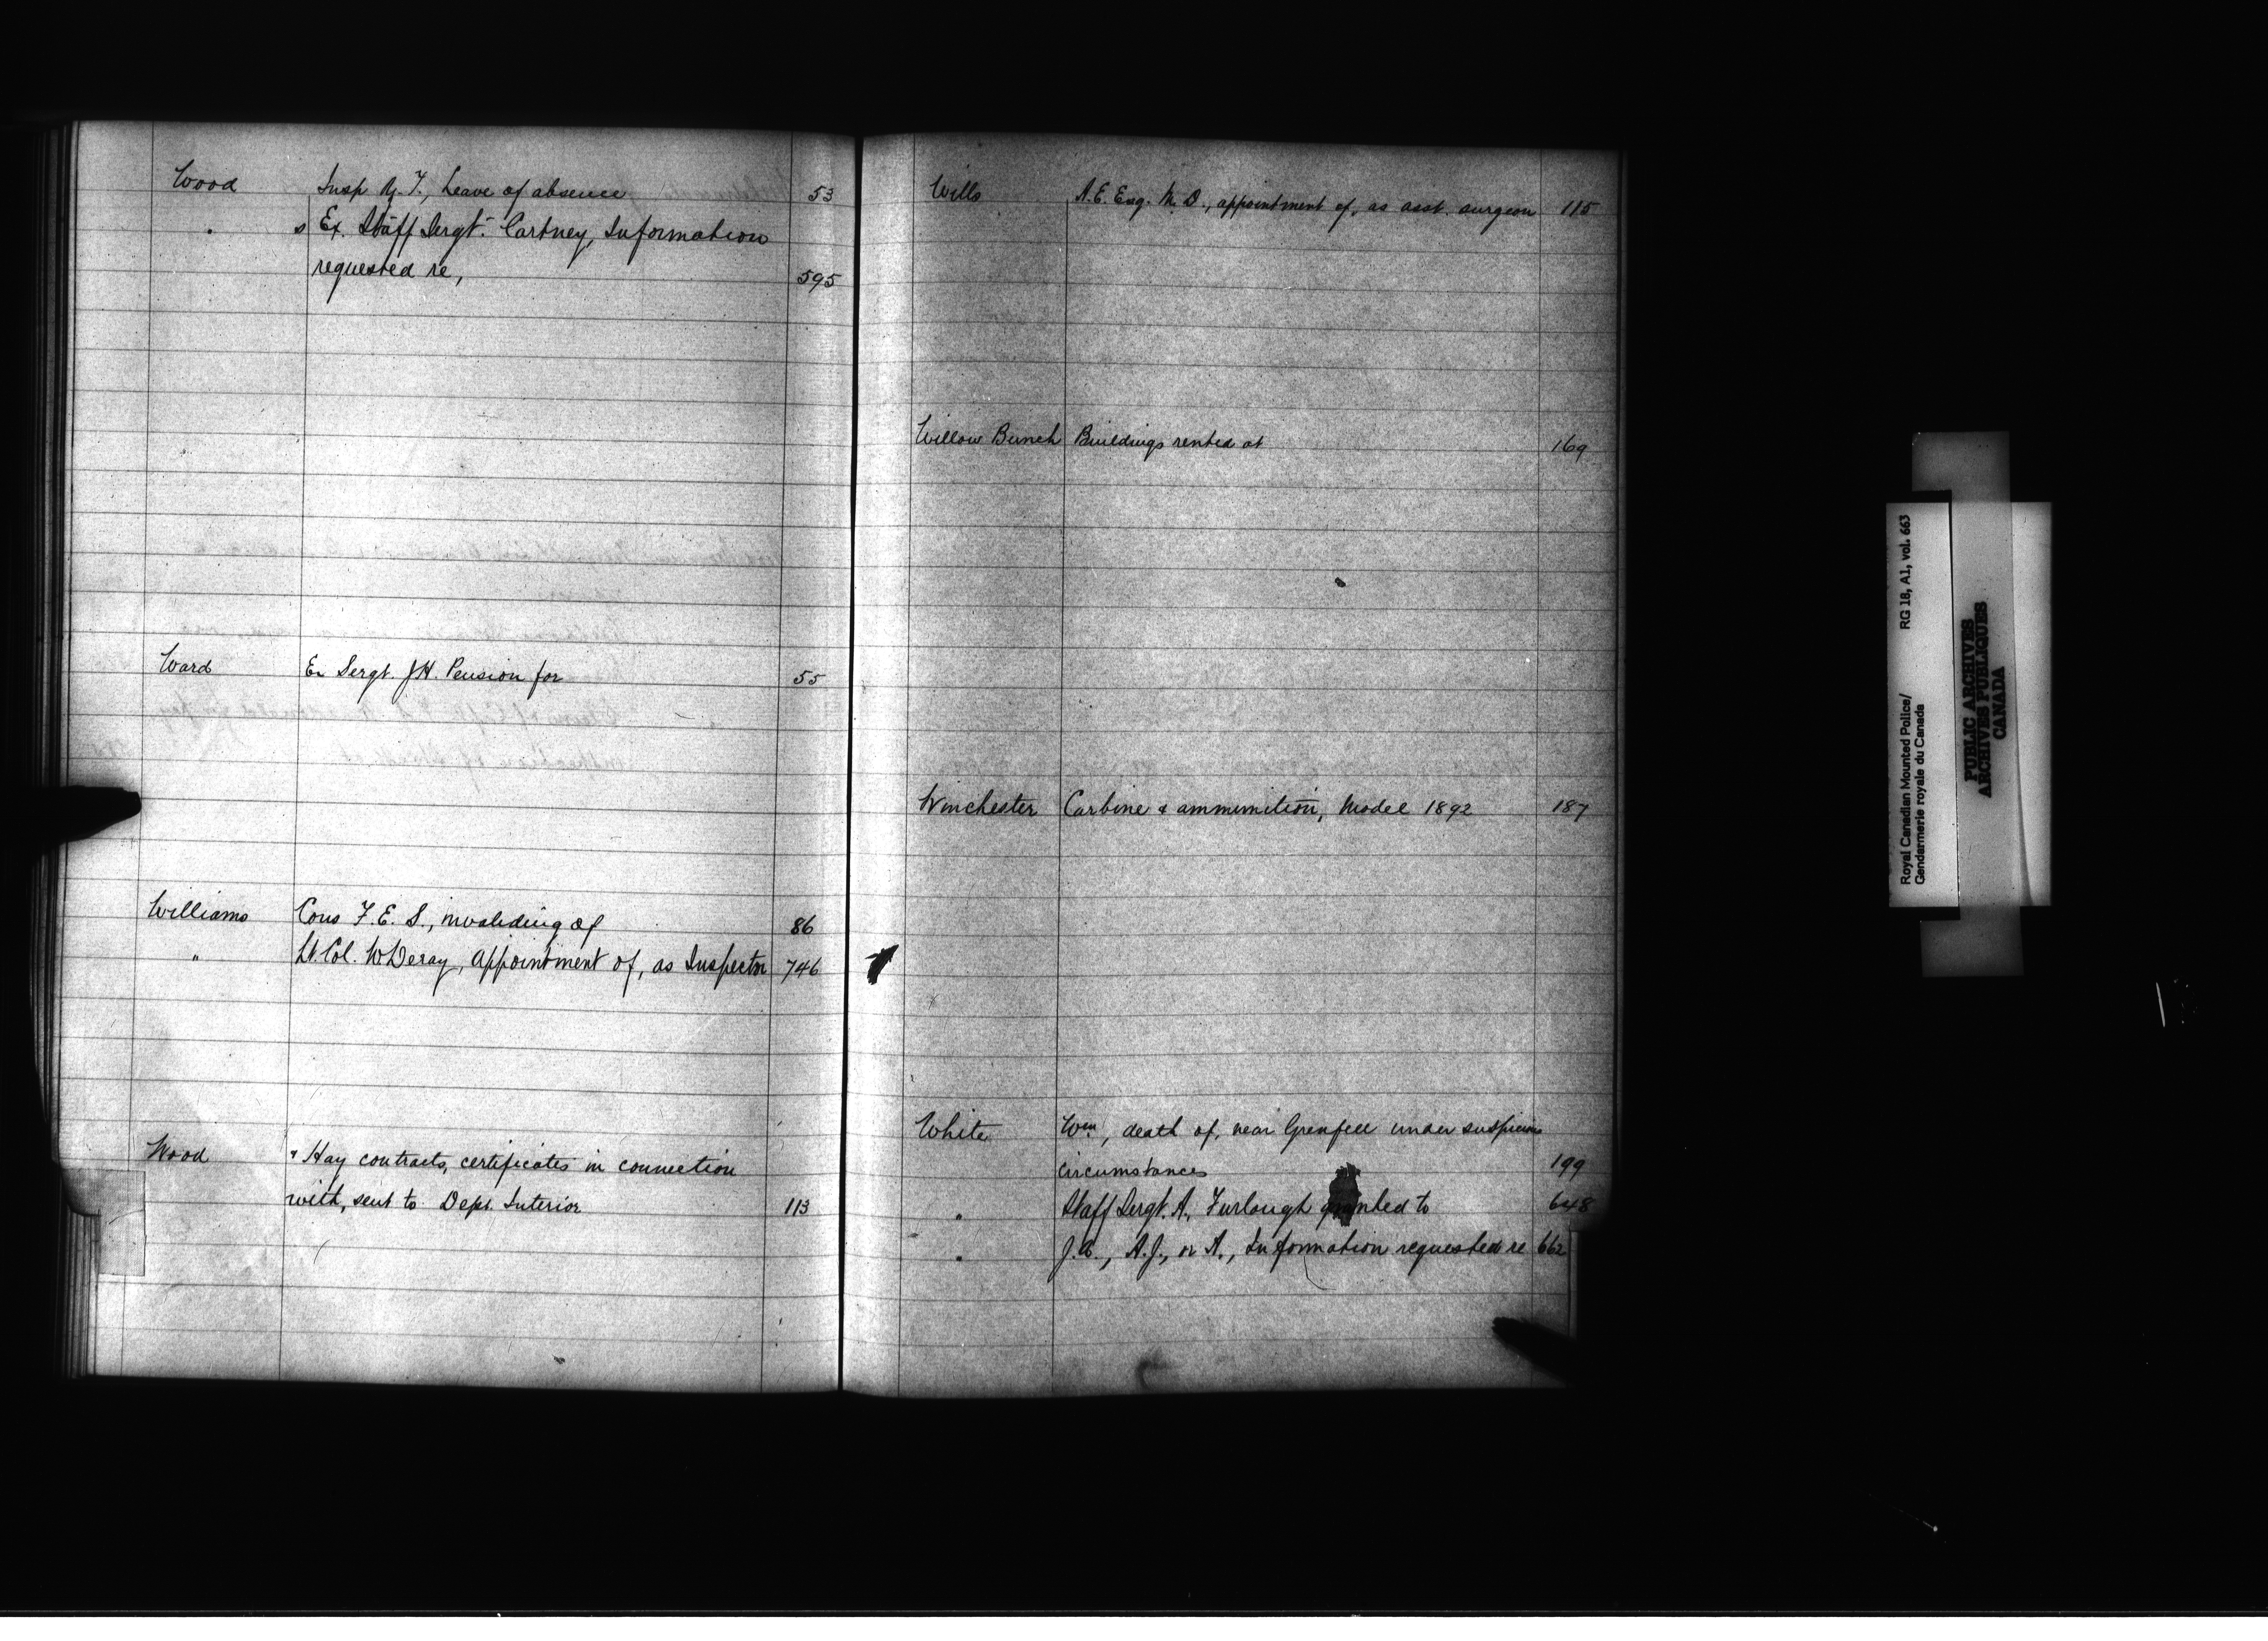 Wood Insp Z. T., Leave of absence 53
" s Ex. Staff Sergt. Cartney, Information
requested re, 595
Ward Ex Sergt. J H. Pension for 55
Williams Cons F. E. S., invaliding of 86
" Lt. Col. W Deray, appointment of, as Inspector 746
Wood & Hay contracts, certificates in connection
with, sent to Dept. Interior 113
Wills A. E. Esq. M. D., appointment of, as asst. surgeon 115
Willow Bunch Buildings rented at 169
Winchester Carbine & ammunition, Model 1892 187
White Wm, death of, near Grenfell under suspicious
circumstances 199
" Staff Sergt. A. Furlough granted to 648
" A.J., or A., Information requested re 662
Royal Canadian Mounted Police/ RG 18, A1, vol. 663
Gendarmerie royale du Canada
PUBLIC ARCHIVES
ARCHIVES PUBLIQUES
CANADA